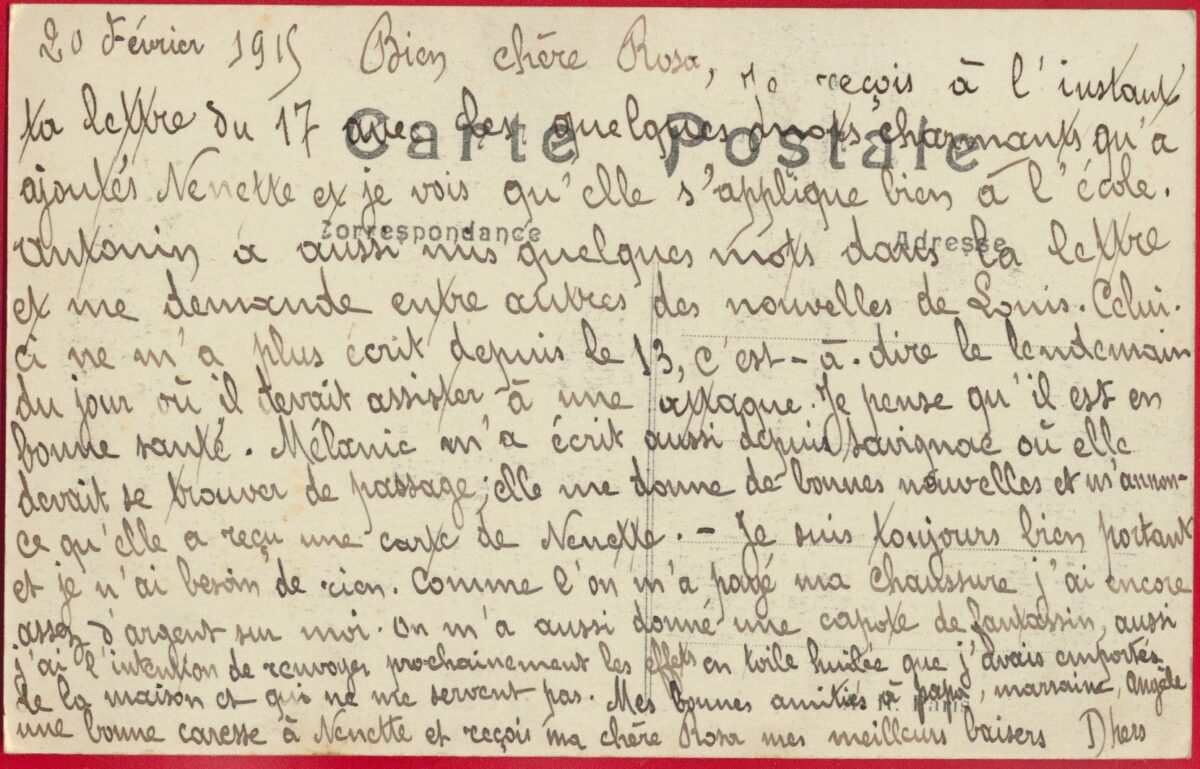 20 Février 1915 Bien chère Rosa, Je reçois à l'instant
ta lettre du 17 avec les quelques mots charmants qu'a
Carte Postale
ajoutés Nenette et je vois qu'elle s'applique bien à l'école.
Correspondance Adresse
Antonin a aussi mis quelques mots dans la lettre
et me demande entre autres des nouvelles de Louis. Celui-
ci ne m'a plus écrit depuis le 13, c'est-à-dire le lendemain
du jour où il devait assister à une attaque. Je pense qu'il est en
bonne santé. Mélanie m'a écrit aussi depuis Savignac où elle
devait se trouver de passage; elle me donne de bonnes nouvelles et m'annon-
ce qu'elle a reçu une carte de Nenette. - Je suis toujours bien portant
et je n'ai besoin de rien. Comme l'on m'a payé ma chaussure j'ai encore
assez d'argent sur moi. On m'a aussi donné une capote de fantassin, aussi
j'ai l'intention de renvoyer prochainement les effets en toile huilée que j'avais emportés
de la maison et qui ne me servent pas. Mes bonnes amitiés à papa, marraine, Angèle
une bonne caresse à Nenette et reçois ma chère Rosa mes meilleurs baisers Dhers